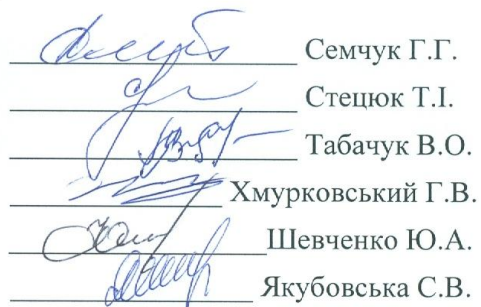 Семчук Г.Г.
Стецюк Т.І.
Табачук В.О.
Хмурковський Г.В.
Шевченко Ю.А.
Якубовська С.В.